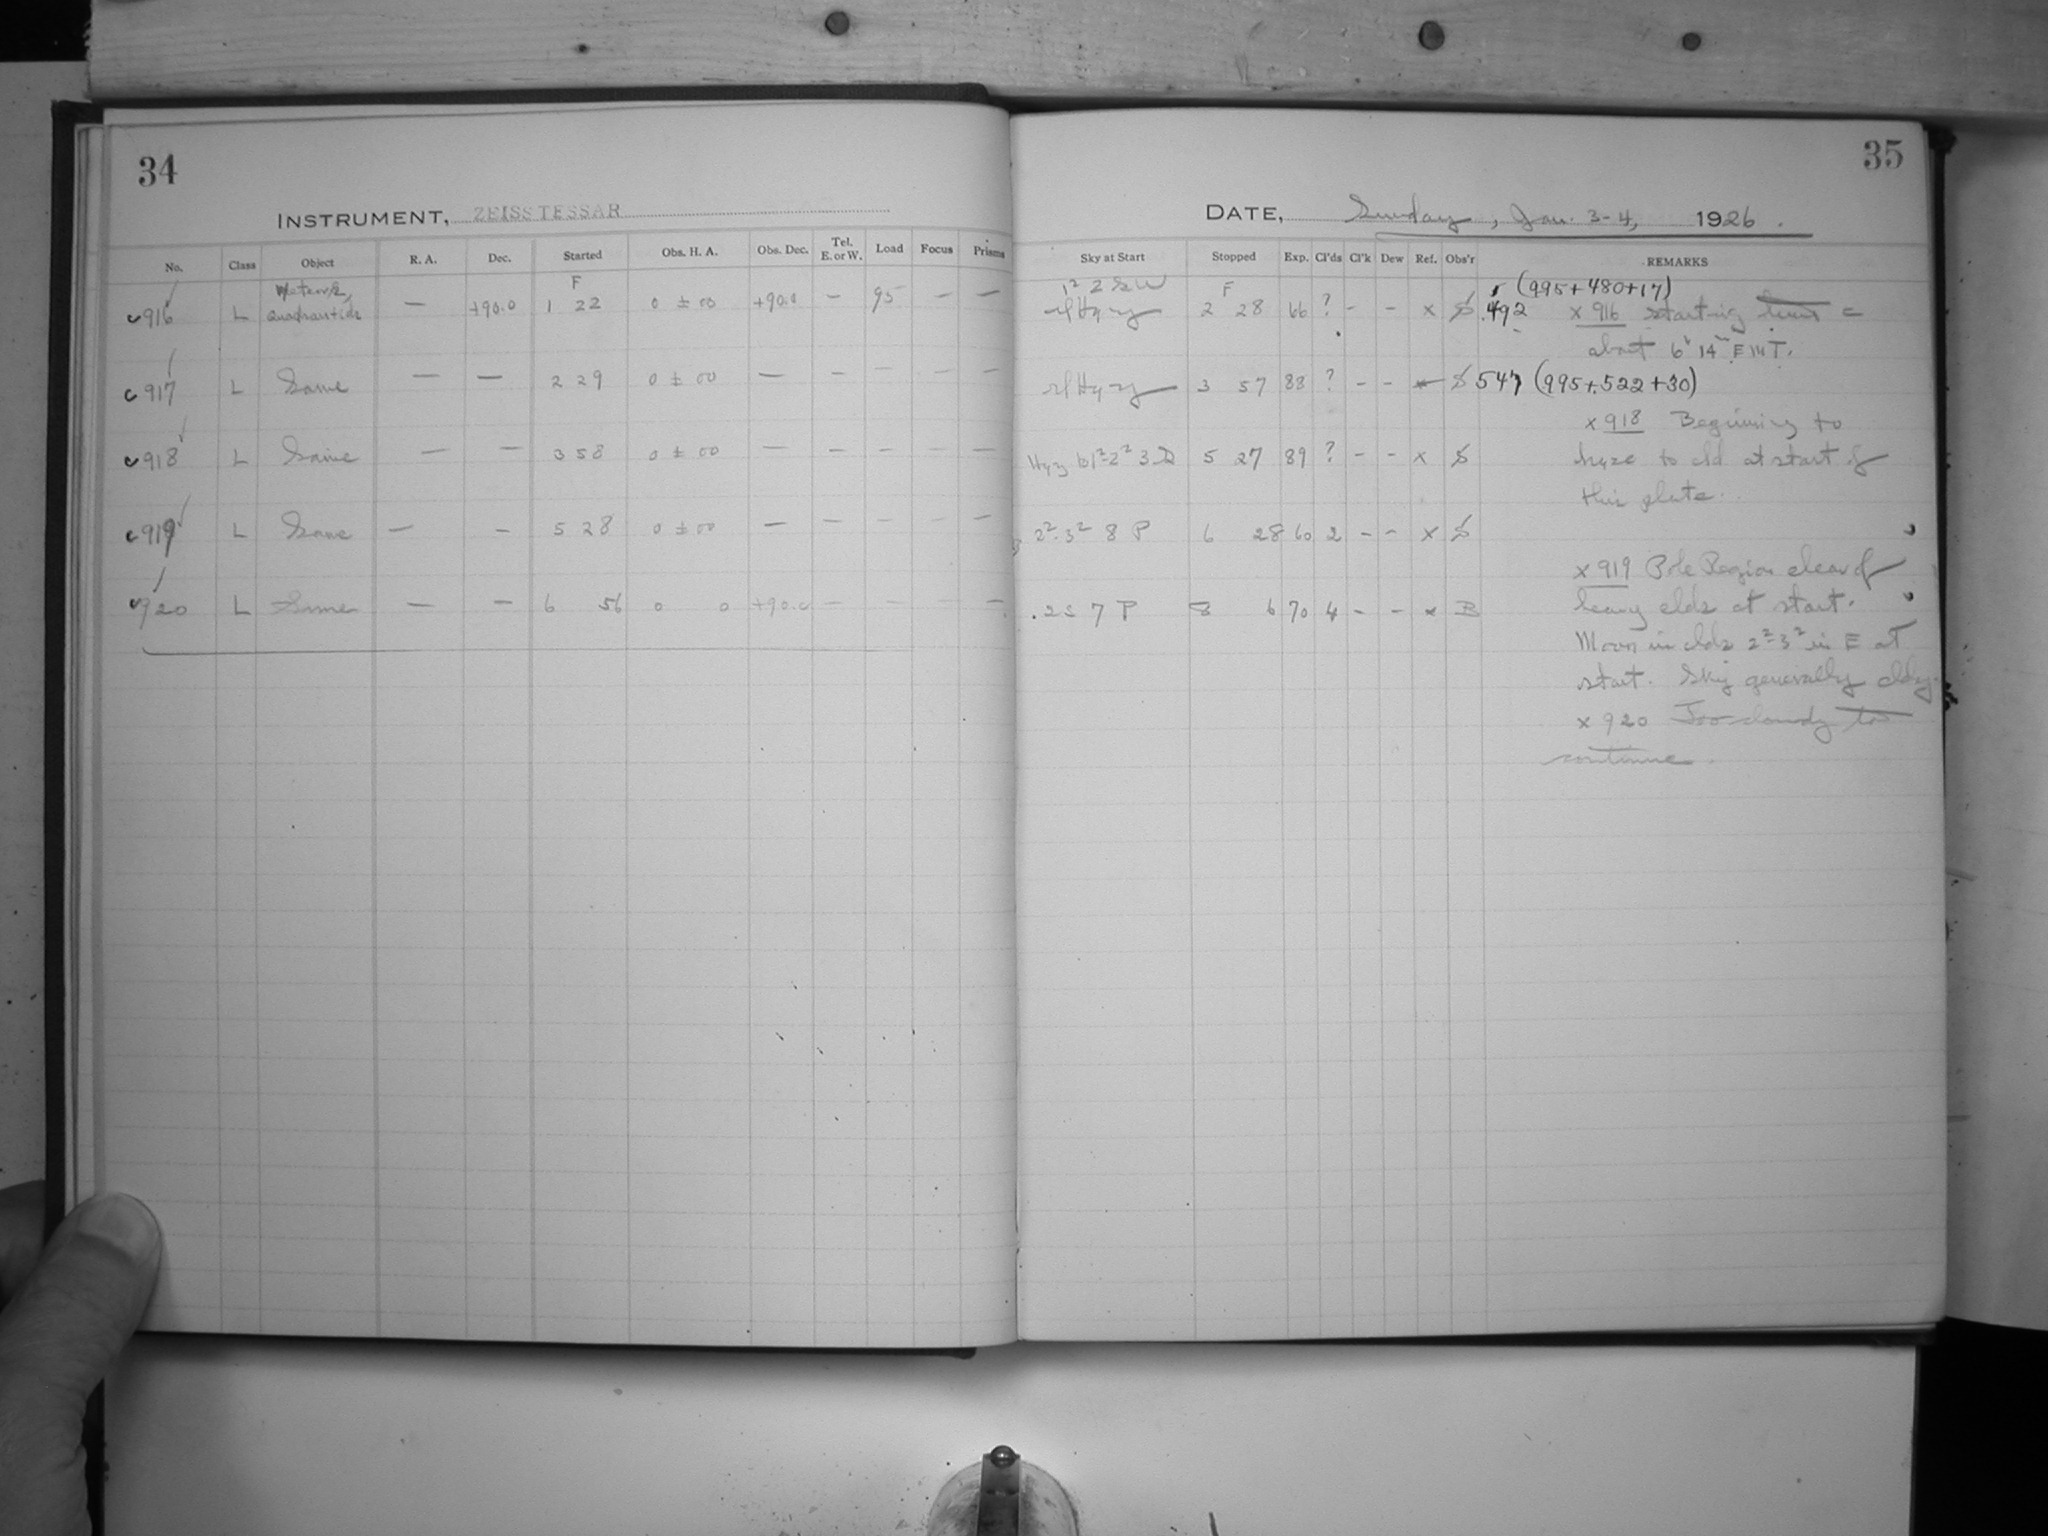 34
INSTRUMENT, ZEISS TESSAR
No. Class Object R. A. Dec. Started Obs. H. A. Obs. Dec. Tel. E. or W. Load Focus Prisms
F
916 L Quadrantids — +90.0 1 22 0 ± 00 +90.0 — 95 — —
917 L Same — — 2 29 0 ± 00 — — — — —
918 L Same — — 3 58 0 ± 00 — — — — —
919 L Same — — 5 28 0 ± 00 — — — — —
920 L Same — — 6 56 0 0 +90.0 — — — —
35
DATE, Sunday, Jan. 3-4, 1926.
Sky at Start Stopped Exp. Cl'ds Cl'k Dew Ref. Obs'r REMARKS
F (995+480+17)
2 28 66 ? - - x 492 x 916 starting
about 6h 14m E M T.
3 57 88 ? - - 547 (995+522+30)
x 918 Beginning to
5 27 89 ? - - x to cld at start of
this plate.
2²-3² 8 P 6 28 60 2 - - x
x 919 Pole Region clear of
heavy clds at start.
7 P 8 6 70 4 - - x B
Moon in clds 2²-3² in E at
start. Sky generally cldy.
x 920 Too cloudy to
continue.